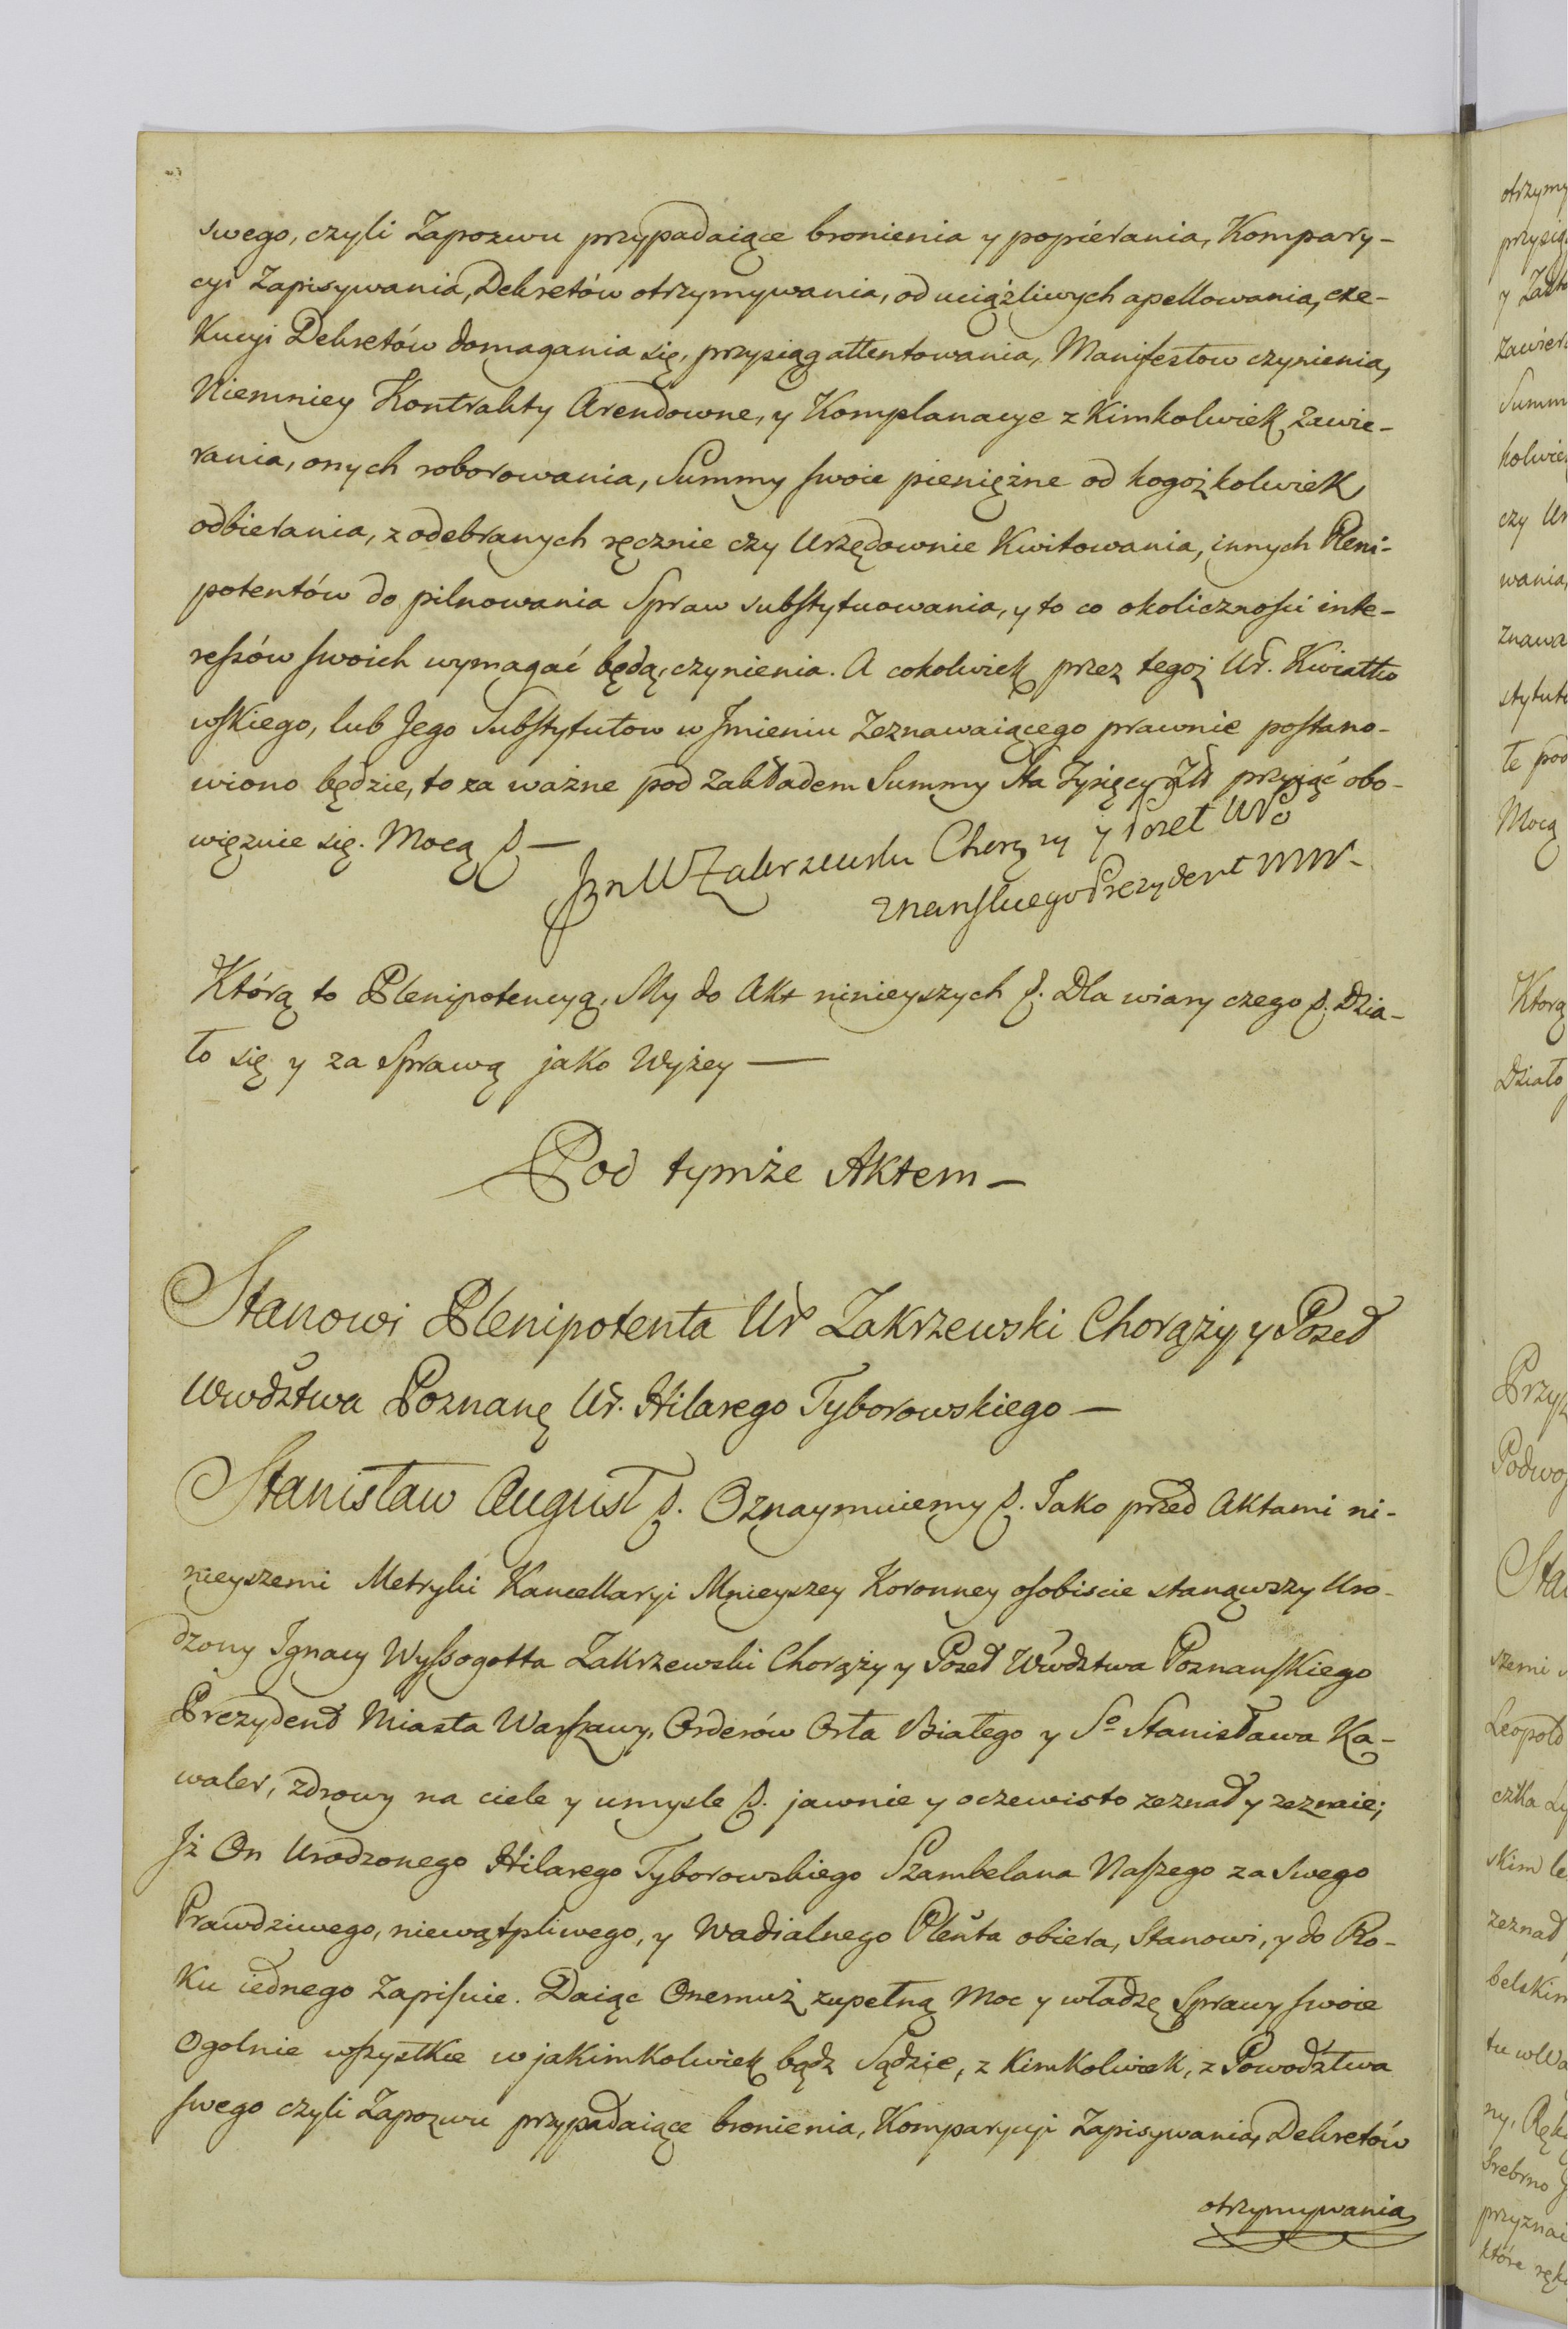 swego, czyli Zapozwu przypadaiące bronienia y popiérania, Kompary-
cyi Zapisywania, Dekretów otrzymywania, od uciążliwych apellowania, exe-
Kucyi Dekretów domagania się, przysiąg attentowania, Manifestow czynienia,
Niemniey Kontrakty Arendowne, y Komplanacye z Kimkolwiek zawie-
rania, onych roborowania, Summy swoie pieniężne od kogożkolwiek
odbierania, z odebranych ręcznie czy Urzędownie Kwitowania, innych Pleni-
potentów do pilnowania Spraw substytuowania, y to co okoliczności inte-
ressów swoich wymagać będą, czynienia. A cokolwiek przez tegoż Ur. Kwiatko
wskiego, lub Jego Substytutow w Jmieniu Zeznawaiącego prawnie postano-
wiono będzie, to za ważne pod zakładem Summy Sta Tysięcy Zł przyiąć obo-
więznie się. Mocą &. —
Zakrzewski Chorąży y Poseł Wo
znanskiego Prezydent
Którą to Plenipotencyą, My do Akt ninieyszych &. Dla wiary czego &. Dzia-
ło się y za Sprawą jako Wyżey —
Pod tymże Aktem —
Stanowi Plenipotenta Ur Zakrzewski Chorąży y Poseł
Wwdztwa Poznanſ Ur. Hilarego Tyborowskiego —
Stanisław August &. Oznaymuiemy &. Jako przed Aktami ni-
nieyszemi Metryki Kancellaryi Mnieyszey Koronney osobiscie stanąwszy Uro-
dzony Ignacy Wyssogotta Zakrzewski Chorąży y Poseł Wwdztwa Poznanskiego
Prezydent Miasta Warszawy, Orderów Orła Białego y So Stanisława Ka-
waler, zdrowy na ciele y umysle &. jawnie y oczewisto zeznał y zeznaie;
Jż On Urodzonego Hilarego Tyborowskiego Szambelana Naszego za Swego
Prawdziwego, niewątpliwego, y Wadialnego Plenta obiera, Stanowi, y do Ro-
Ku iednego Zapisuie. Daiąc Onemuż zupełną Moc y władzę Sprawy swoie
Ogolnie wszystkie w jakimkolwiek bądz Sądzie, z Kimkolwiek, z Powodztwa
swego czyli Zapozwu przypadaiące bronienia, Komparycyi Zapisywania, Dekretów
otrzymywania